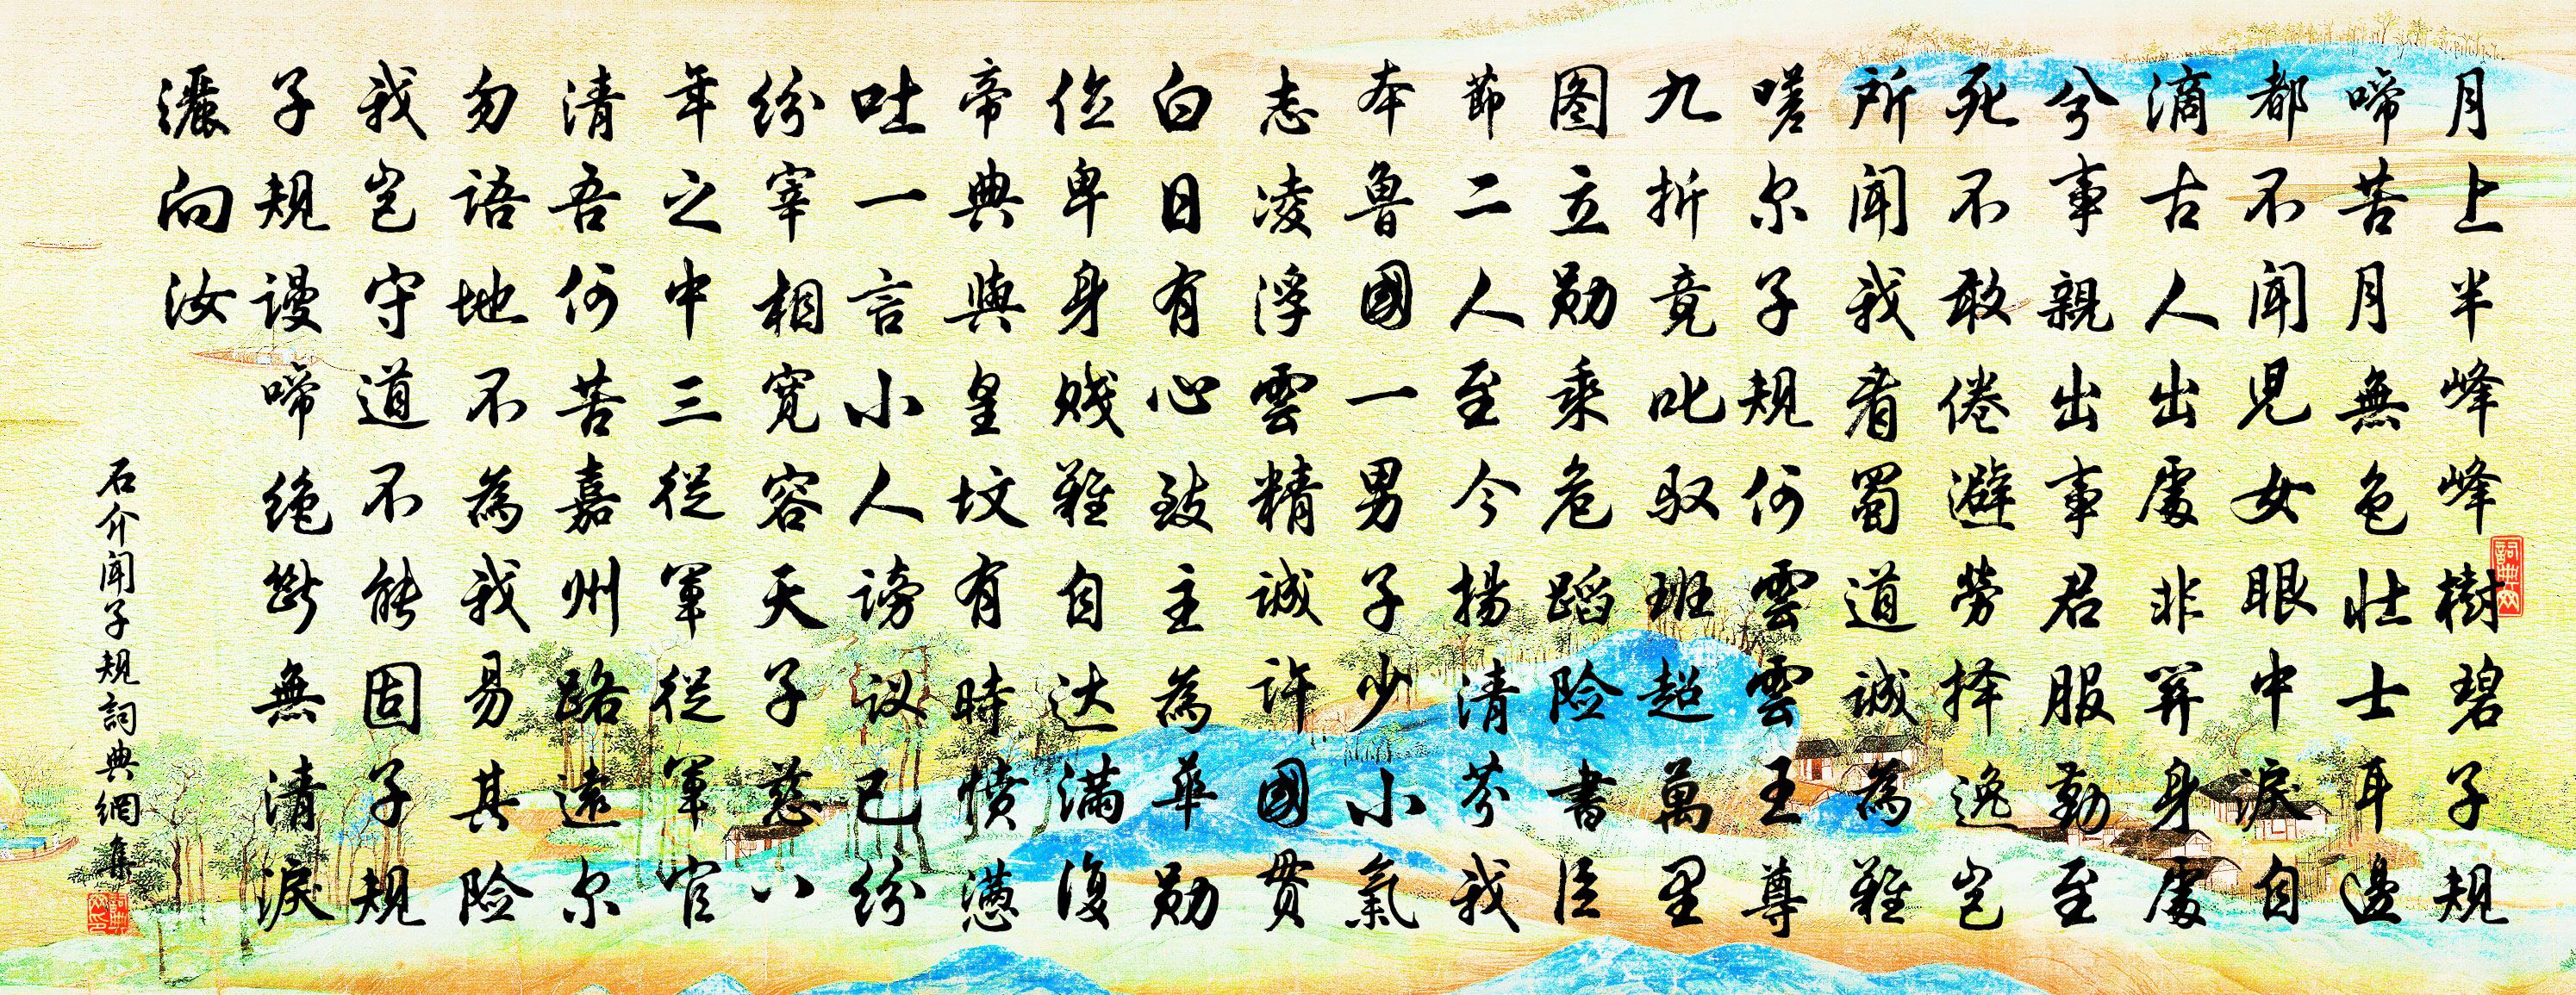 月上半峰峰樹碧子規
啼苦月無色壯士耳邊
都不聞兒女眼中淚自
滴古人出處非算身處
兮事親出事君服勤至
死不敢倦避勞择逸岂
所聞我看蜀道誠為難
嗟尔子規何雲雲王尊
九折竟叱馭班超萬里
图立勋乘危蹈险書臣
節二人至今揚清芬我
本魯國一男子少小氣
志凌浮雲精誠許國貫
白日有心致主為華勋
位卑身賤難自达滿復
帝典與皇坟有時憤懑
吐一言小人謗议已紛
紛宰相寬容天子慈八
年之中三從軍從軍官
清吾何苦嘉州路遠尔
勿語地不為我易其险
我岂守道不能固子規
子規謾啼絕斷無清淚
灑向汝
石介聞子規詞典網集